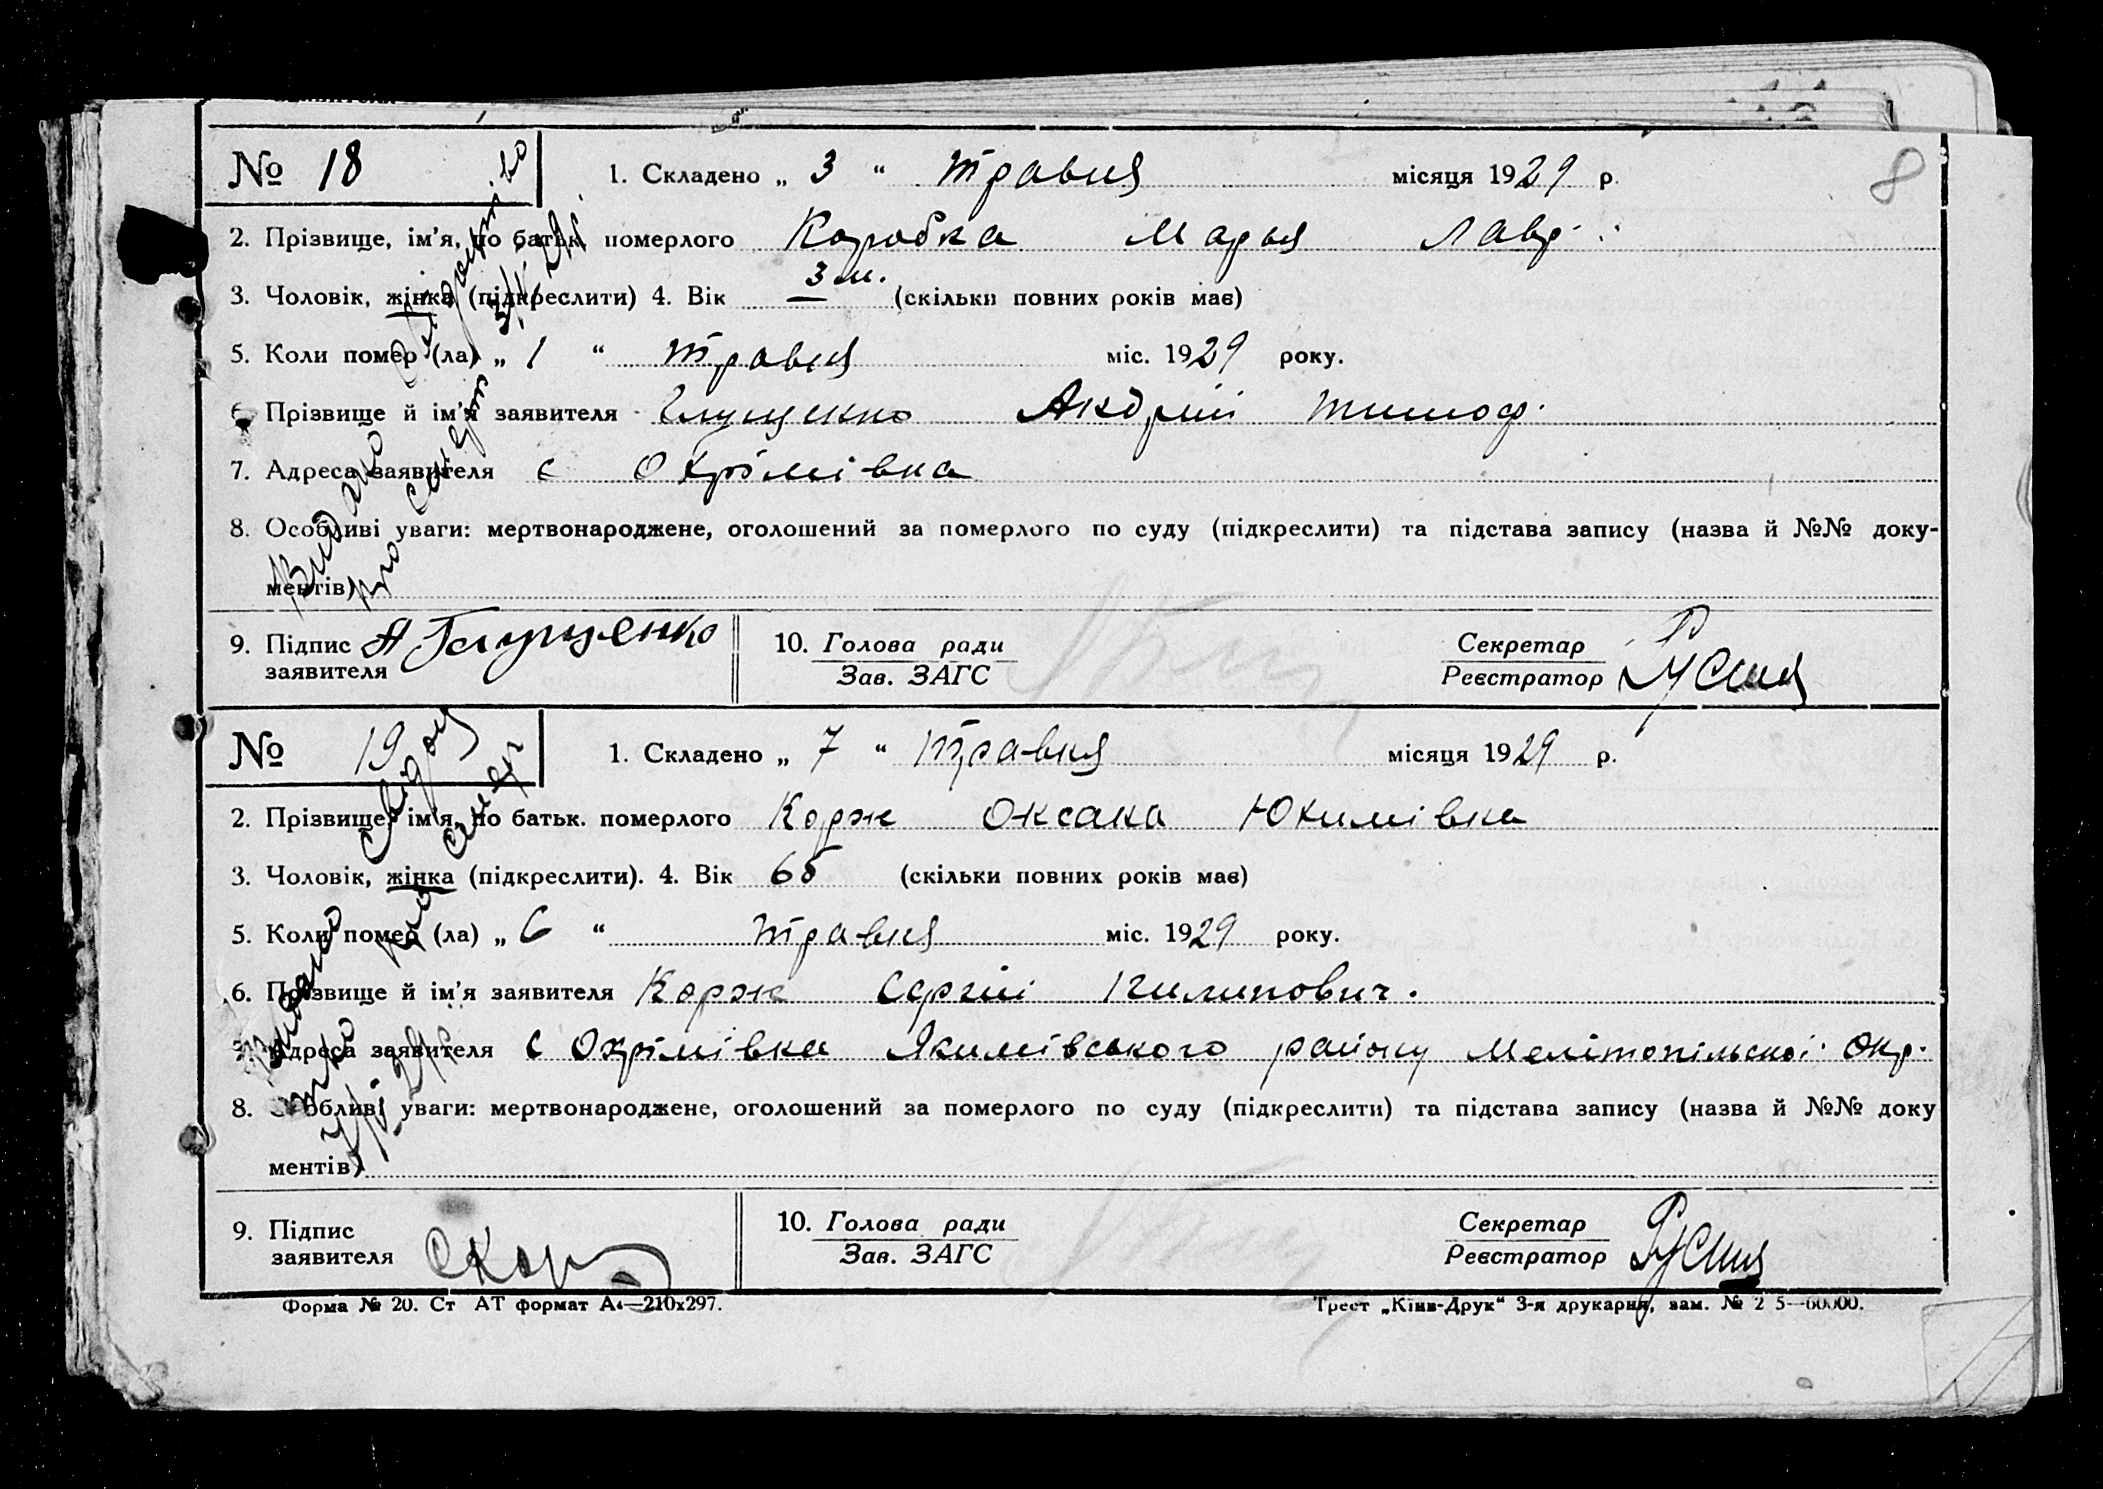 8
№ 18
1. Складено „ 3 “ Травня місяця 1929 р.
2. Прізвище, ім'я, по батьк. померлого Коробка Марья Лавр.
3. Чоловік, жінка (підкреслити) 4. Вік 3 м. (скільки повних років має)
5. Коли помер (ла) „ 1 “ Травня міс. 1929 року.
6. Прізвище й ім'я заявителя Глущенко Андрій Тимоф.
7. Адреса заявителя с Охрімівка
8. Особливі уваги: мертвонароджене, оголошений за померлого по суду (підкреслити) та підстава запису (назва й №№ доку-
ментів)
Видано свідоцтво
про смерть 3/V 29р.
9. Підпис заявителя А Глущенко
10. Голова ради
Зав. ЗАГС
Секретар
Реєстратор
№ 19
1. Складено „ 7 “ Травня місяця 1929 р.
2. Прізвище, ім'я, по батьк. померлого Корж Оксана Юхимівна
3. Чоловік, жінка (підкреслити). 4. Вік 65 (скільки повних років має)
5. Коли помер (ла) „ 6 “ Травня міс. 1929 року.
6. Прізвище й ім'я заявителя Корж Сергій Пилипович.
7. Адреса заявителя с Охрімівка Якимівського району Мелітопільської Окр.
8. Особливі уваги: мертвонароджене, оголошений за померлого по суду (підкреслити) та підстава запису (назва й №№ доку
ментів)
Видано свідоц
тво про смерт
7/V 29р.
9. Підпис заявителя С Кор
10. Голова ради
Зав. ЗАГС
Секретар
Реєстратор
Форма № 20. Ст АТ формат А4—210х297.
Трест „Київ-Друк“ 3-я друкарня, зам. № 2 5—60000.